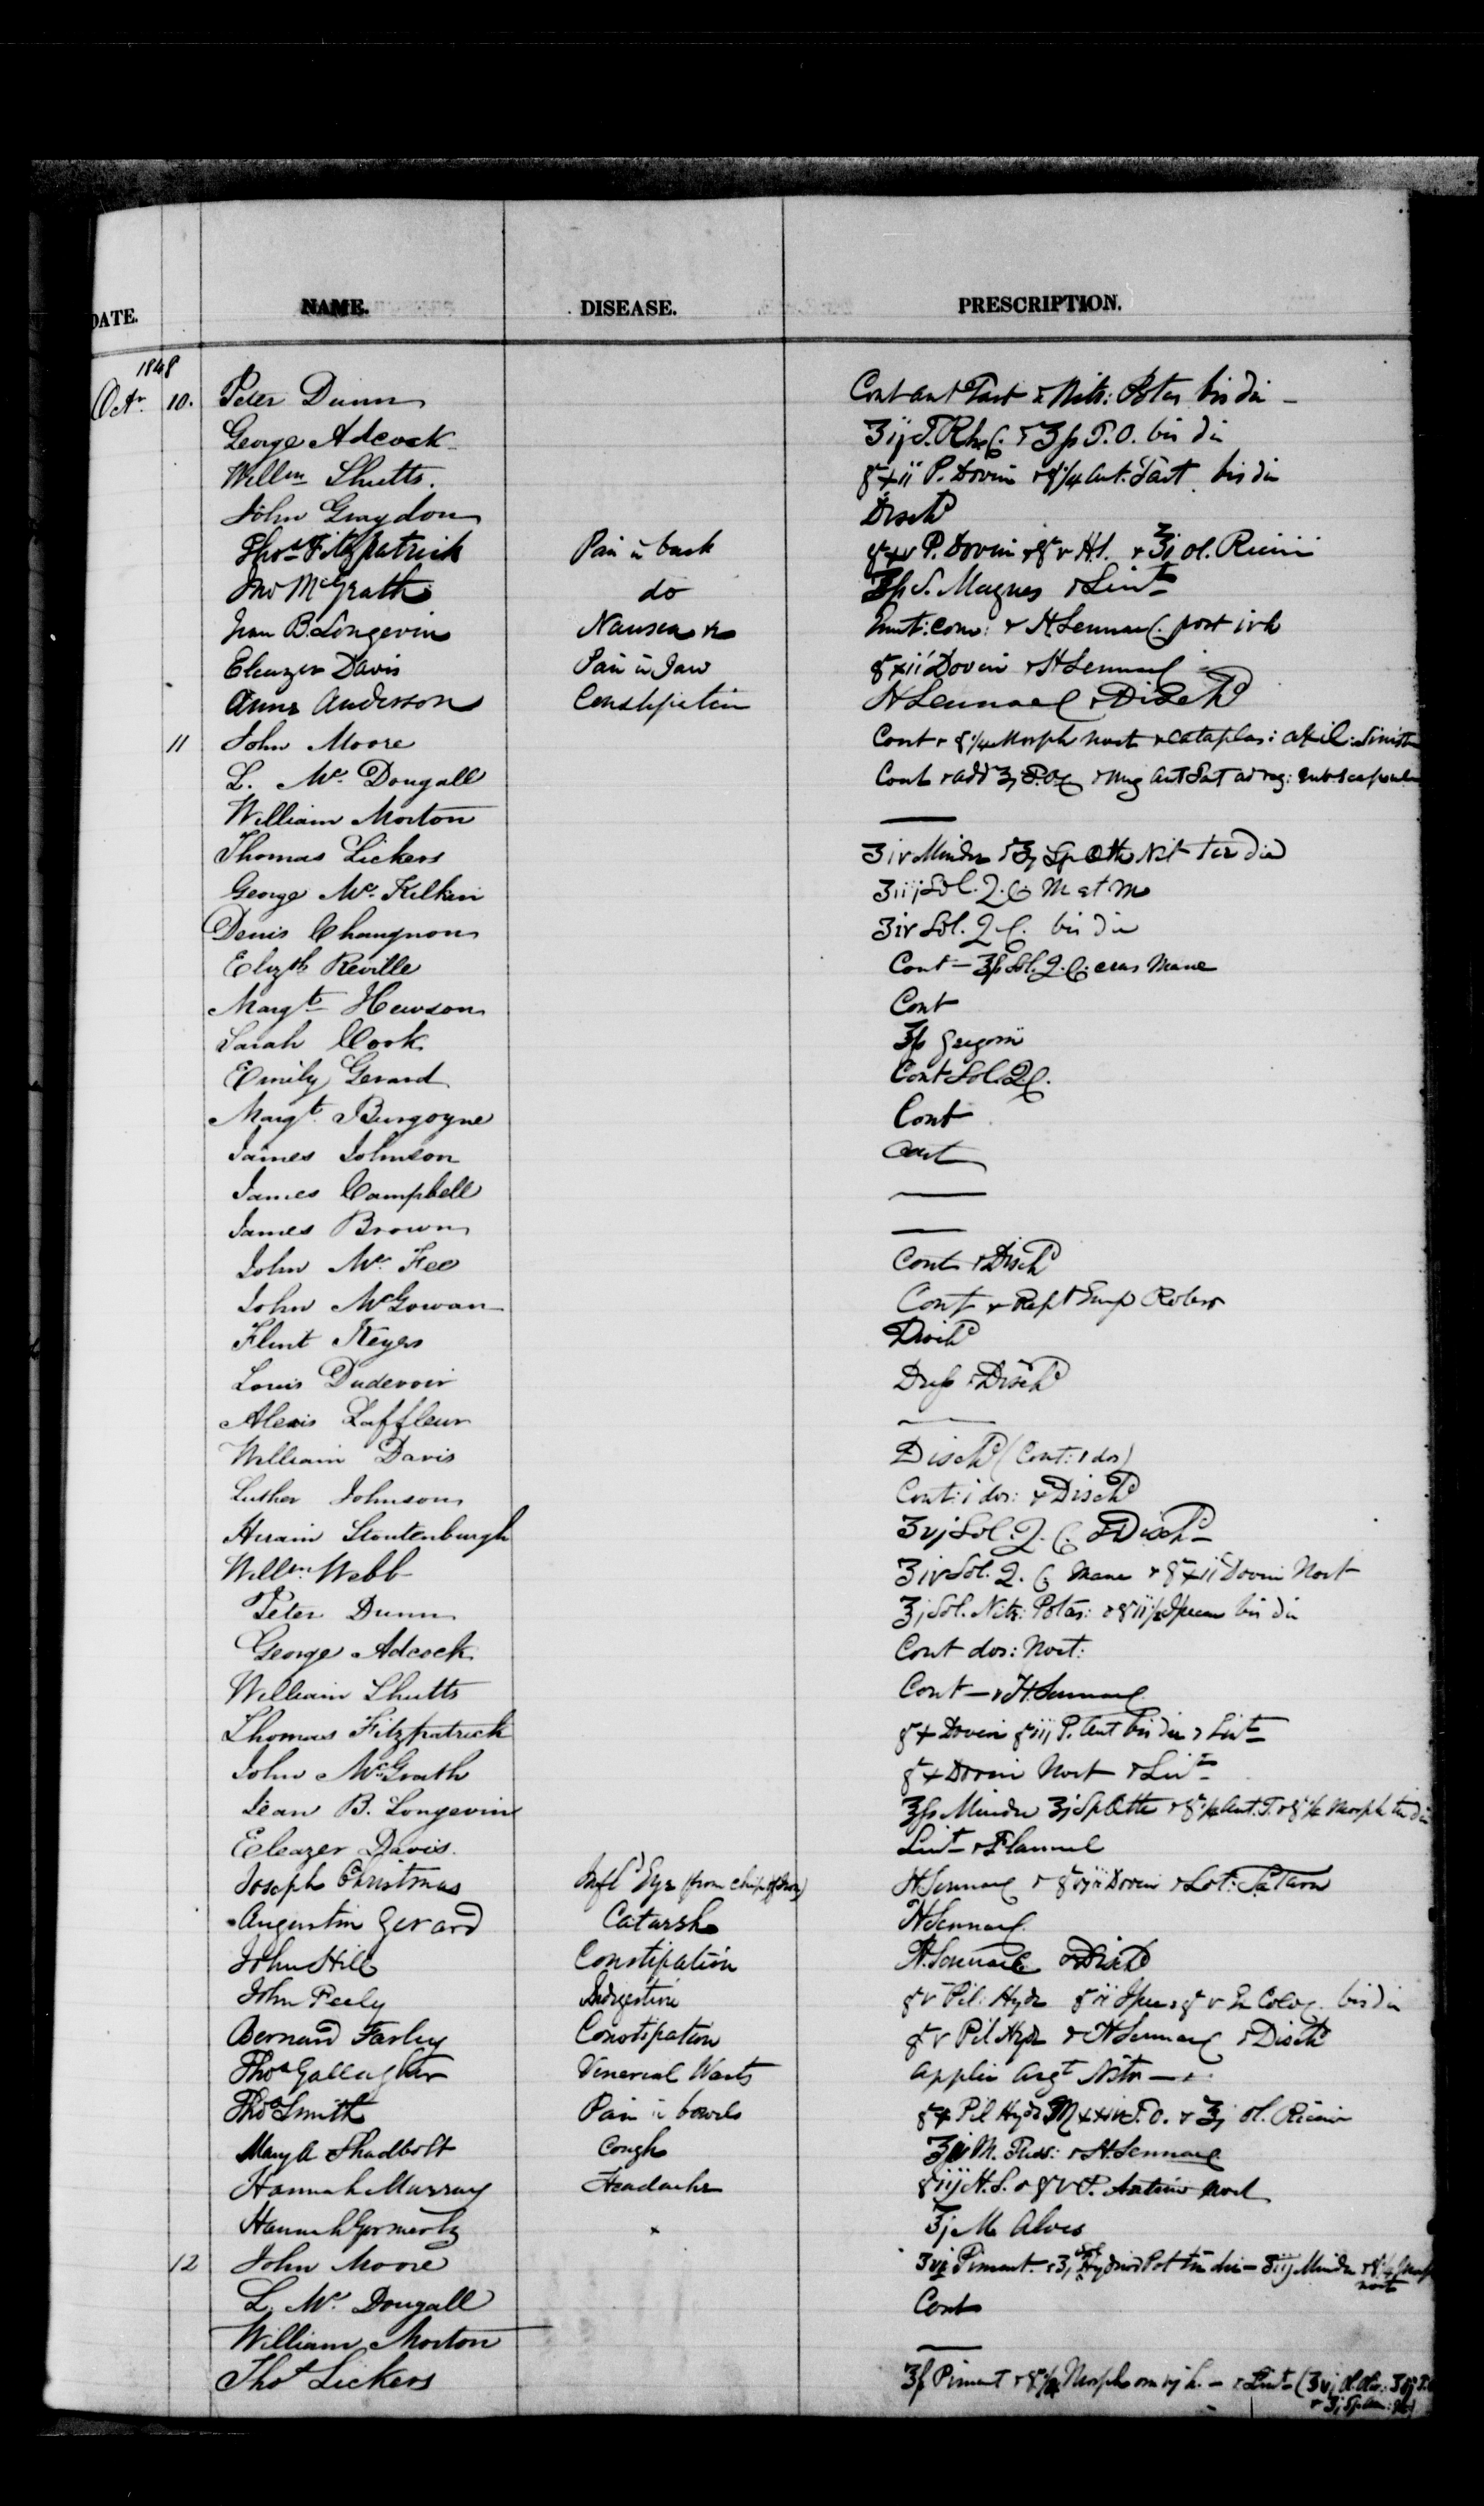 DATE. NAME. DISEASE. PRESCRIPTION.
1848
Octr 10. Peter Dunn Cont ant Tart & Nitr: Potas bis die
George Adcock ʒij T. Rhe C. & ʒß T.O. bis die
Willm Shutts. gr xii P. Doveri & gr 1/4 Ant. Tart bis die
John Graydon Dischd
Thos Fitzpatrick Pain in back gr xv P. Doveri & gr v H.S. & ℥j ol. Ricini
Jno McGrath do ℥ß S. Magnes & Lint
Jean B. Longevin Nausea &c & H Sennae C. post
Eleazer Davis Pain in Jaw gr xii Doveri & H Sennae C
Anne Anderson Constipation H Sennae C & Dischd
11 John Moore Cont & gr 1/4 Morph Noct & Cataplas: Sinist
L. Mc Dougall Cont & add ʒj & Ung Ant Tart ad reg: subscapular
William Morton —
Thomas Lickers ʒiv Minder & ʒj Sp Æth Nit ter die
George Mc Kilkin ʒiij Sol. Q. C. M et M
Denis Changnon ʒiv Sol. Q C. bis die
Elizth Reville Cont — ℥ß Sol. Q. C. cras Mane
Margt Hewson Cont
Sarah Cook ʒß Gregorii
Emily Gerard Cont Sol. Q C.
Margt Burgoyne Cont
James Johnson Cont
James Campbell —
James Brown —
John Mc Fee Cont & Dischd
John McGowan Cont & Rept Emp Robor
Flint Keyes Dischd
Louis Dudevoir Dress & Dischd
Alexis Laffleur —
William Davis Dischd (Cont: 1 dos)
Luther Johnson Cont: 1 dos: & Dischd
Hiram Stoutenburgh ʒvj Sol. Q. C. & Dischd
Willm Webb ʒiv Sol. Q. C. Mane & gr xii Doveri Noct
Peter Dunn ʒj Sol. Nitr: Potas: & gr iiß Ipecac bis die
George Adcock Cont dos: Noct:
William Shutts Cont — & H. Sennae C
Thomas Fitzpatrick gr x Doveri gr iij P. Ant bis die & Lint
John McGrath gr x Doveri Noct & Lint
Jean B. Longevin ℥ß Minder ʒj Sp Æther & gr 1/4 Ant. T. & gr 1/4 Morph ter die
Eleazer Davis. Lint & Flannel
Joseph Christmas Infld Eye (from chip of Iron) H Sennae C & gr viii Doveri & Lot: Saturn
Augustin Gerard Catarrh H Sennae C
John Hill Constipation H. Sennae C & Dischd
John Feely Indigestion gr v Pil: Hydr gr ii Ipec & gr v Ex Coloc. bis die
Bernard Farley Constipation gr v Pil Hydr & H Sennae C & Dischd
Thos Gallagher Venereal Warts Applic Argt Nitr —
Thos Smith Pain in bowels gr x Pil Hydr T.O. & ℥j ol. Ricini
Mary A Shadbolt Cough M. Tuss: & H. Sennae C
Hannah Murray Headache gr iij H.S. & gr v P. Antim Noct
Hannah × ℥j M Aloes
12 John Moore ʒvj Piment. & ʒj Sol Hydriod Pot ter die — ʒiij Minder & gr 1/4 Morph noct
L. Mc Dougall Cont
William Morton —
Thos Lickers Piment & gr 1/4 Morph om vj h. — & Lint